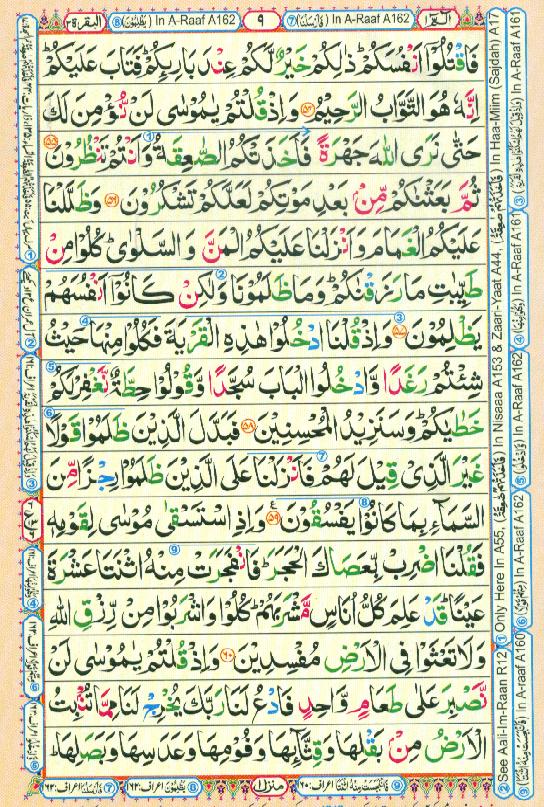 البقرة ٢ ⑧ (يَظْلِمُوْنَ) In A-Raaf A162 ٩ ⑦ (فَاَرْسَلْنَا) In A-Raaf A162 الٓمّٓ ١
فَاقْتُلُوْۤا اَنْفُسَكُمْؕ ذٰلِكُمْ خَيْرٌ لَّكُمْ عِنْدَ بَارِىِٕكُمْؕ فَتَابَ عَلَيْكُمْؕ
اِنَّهٗ هُوَ التَّوَّابُ الرَّحِيْمُ ﴿۵۴﴾ وَاِذْ قُلْتُمْ يٰمُوْسٰى لَنْ نُّؤْمِنَ لَكَ
حَتّٰى نَرَى اللّٰهَ جَهْرَةً فَاَخَذَتْكُمُ الصّٰعِقَةُ وَاَنْتُمْ تَنْظُرُوْنَ ﴿۵۵﴾
ثُمَّ بَعَثْنٰكُمْ مِّنْۢ بَعْدِ مَوْتِكُمْ لَعَلَّكُمْ تَشْكُرُوْنَ ﴿۵۶﴾ وَظَلَّلْنَا
عَلَيْكُمُ الْغَمَامَ وَاَنْزَلْنَا عَلَيْكُمُ الْمَنَّ وَالسَّلْوٰىؕ كُلُوْا مِنْ
طَيِّبٰتِ مَا رَزَقْنٰكُمْؕ وَمَا ظَلَمُوْنَا وَلٰكِنْ كَانُوْۤا اَنْفُسَهُمْ
يَظْلِمُوْنَ ﴿۵۷﴾ وَاِذْ قُلْنَا ادْخُلُوْا هٰذِهِ الْقَرْيَةَ فَكُلُوْا مِنْهَا حَيْثُ
شِئْتُمْ رَغَدًا وَّادْخُلُوا الْبَابَ سُجَّدًا وَّقُوْلُوْا حِطَّةٌ نَّغْفِرْ لَكُمْ
خَطٰيٰكُمْؕ وَسَنَزِيْدُ الْمُحْسِنِيْنَ ﴿۵۸﴾ فَبَدَّلَ الَّذِيْنَ ظَلَمُوْا قَوْلًا
غَيْرَ الَّذِىْ قِيْلَ لَهُمْ فَاَنْزَلْنَا عَلَى الَّذِيْنَ ظَلَمُوْا رِجْزًا مِّنَ
السَّمَآءِ بِمَا كَانُوْا يَفْسُقُوْنَ ﴿۵۹﴾ وَاِذِ اسْتَسْقٰى مُوْسٰى لِقَوْمِهٖ
فَقُلْنَا اضْرِبْ بِّعَصَاكَ الْحَجَرَؕ فَانْفَجَرَتْ مِنْهُ اثْنَتَا عَشْرَةَ
عَيْنًاؕ قَدْ عَلِمَ كُلُّ اُنَاسٍ مَّشْرَبَهُمْؕ كُلُوْا وَاشْرَبُوْا مِنْ رِّزْقِ اللّٰهِ
وَلَا تَعْثَوْا فِى الْاَرْضِ مُفْسِدِيْنَ ﴿۶۰﴾ وَاِذْ قُلْتُمْ يٰمُوْسٰى لَنْ
نَّصْبِرَ عَلٰى طَعَامٍ وَّاحِدٍ فَادْعُ لَنَا رَبَّكَ يُخْرِجْ لَنَا مِمَّا تُنْۢبِتُ
الْاَرْضُ مِنْۢ بَقْلِهَا وَقِثَّآىِٕهَا وَفُوْمِهَا وَعَدَسِهَا وَبَصَلِهَاؕ
② See Aali-Im-Raan R12 ① Only Here In A55, In Nisaaa A153 & Zaar-Yaat A44, In Haa-Miim (Sajdah) A17
In A-raaf A160 ⑥ In A-Raaf A162 ⑤ In A-Raaf A162 ④ In A-Raaf A161 ③ In A-Raaf A161
منزل ١